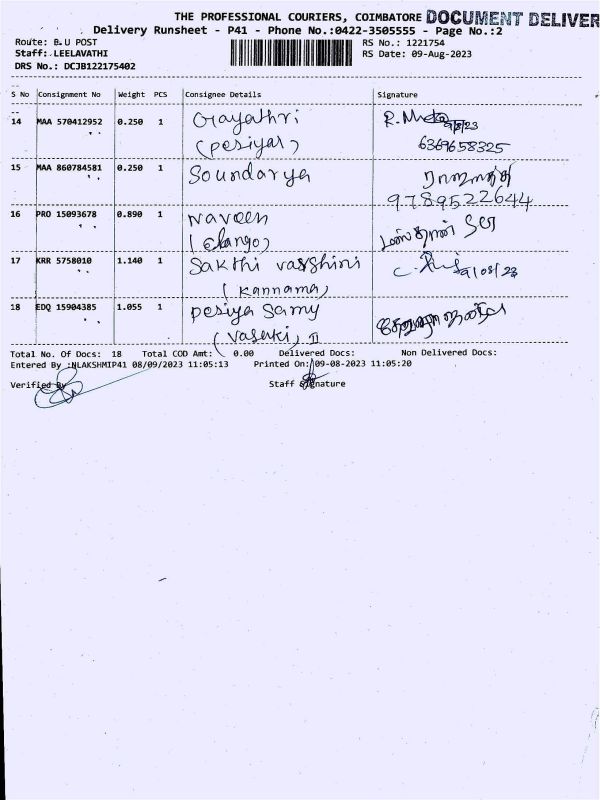 THE PROFESSIONAL COURIERS, COIMBATORE DOCUMENT DELIVER
Delivery Runsheet - P41 - Phone No.:0422-3505555 - Page No.:2
Route: B.U POST RS No.: 1221754
Staff: LEELAVATHI RS Date: 09-Aug-2023
DRS No.: DCJB122175402
S No Consignment No Weight PCS Consignee Details Signature
14 MAA 570412952 0.250 1 Gayathri R.
(Pesiyal) 6369658325
15 MAA 860784581 0.250 1 Soundarya
9789522644
16 PRO 15093678 0.890 1 Naveen
(Elango)
17 KRR 5758010 1.140 1 Sakthi varshini 9/08/23
(Kannama)
18 EDQ 15904385 1.055 1 Pesiya Samy
(Vasuki) II
Total No. Of Docs: 18 Total COD Amt: 0.00 Delivered Docs: Non Delivered Docs:
Entered By :NLAKSHMIP41 08/09/2023 11:05:13 Printed On: 09-08-2023 11:05:20
Verified By Staff Signature